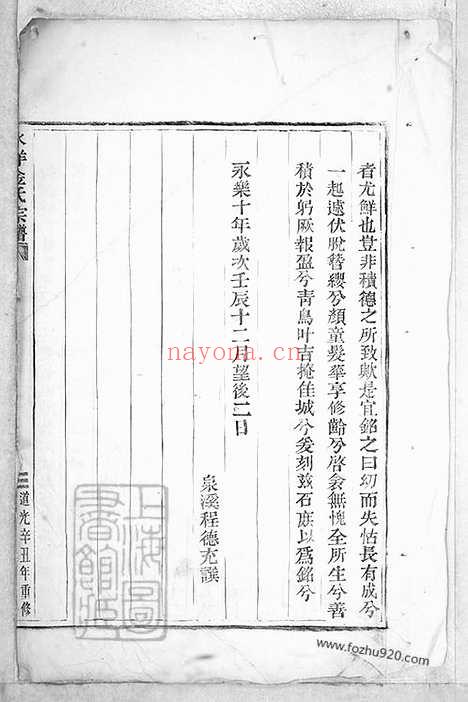 者尤鮮也豈非積德之所致歟是宜銘之曰幼而失怙長有成兮
一起遠伏脫簪纓兮顏童髮華享修齡兮啓衾無愧全所生兮善
積於躬厥報盈兮青烏叶吉掩佳城兮爰刻玆石庶以爲銘兮
永樂十年歲次壬辰十二月望後二日
泉溪程德充譔
洋金氏宗譜
道光辛丑年重修
上海圖書館藏
nayona.cn
www.fozhu920.com